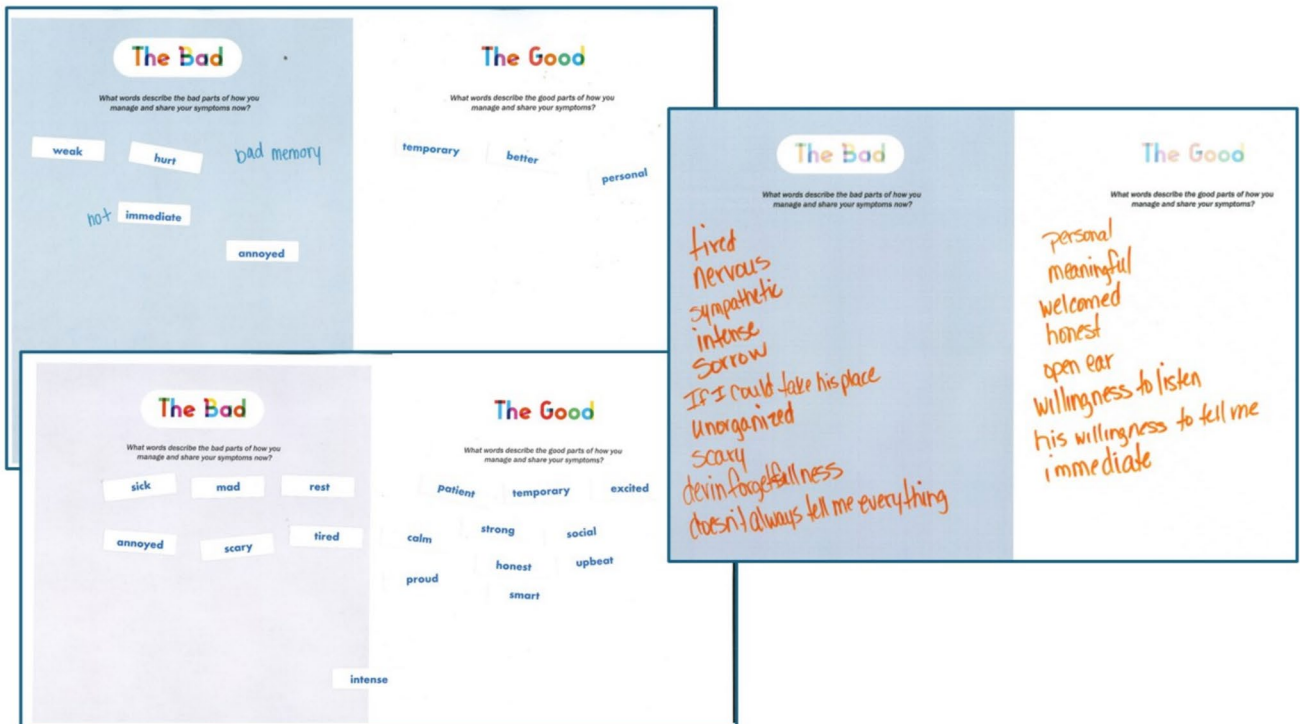 The Bad
What words describe the bad parts of how you
manage and share your symptoms now?
weak
hurt
bad memory
not immediate
annoyed
The Good
What words describe the good parts of how you
manage and share your symptoms?
temporary
better
personal
The Bad
What words describe the bad parts of how you
manage and share your symptoms now?
sick mad rest
annoyed scary tired
intense
The Good
What words describe the good parts of how you
manage and share your symptoms?
patient temporary excited
calm strong social
proud honest upbeat
smart
The Bad
What words describe the bad parts of how you
manage and share your symptoms now?
tired
nervous
sympathetic
intense
sorrow
If I could take his place
unorganized
scary
devin forgetfullness
doesn't always tell me everything
The Good
What words describe the good parts of how you
manage and share your symptoms?
personal
meaningful
welcomed
honest
open ear
willingness to listen
his willingness to tell me
immediate